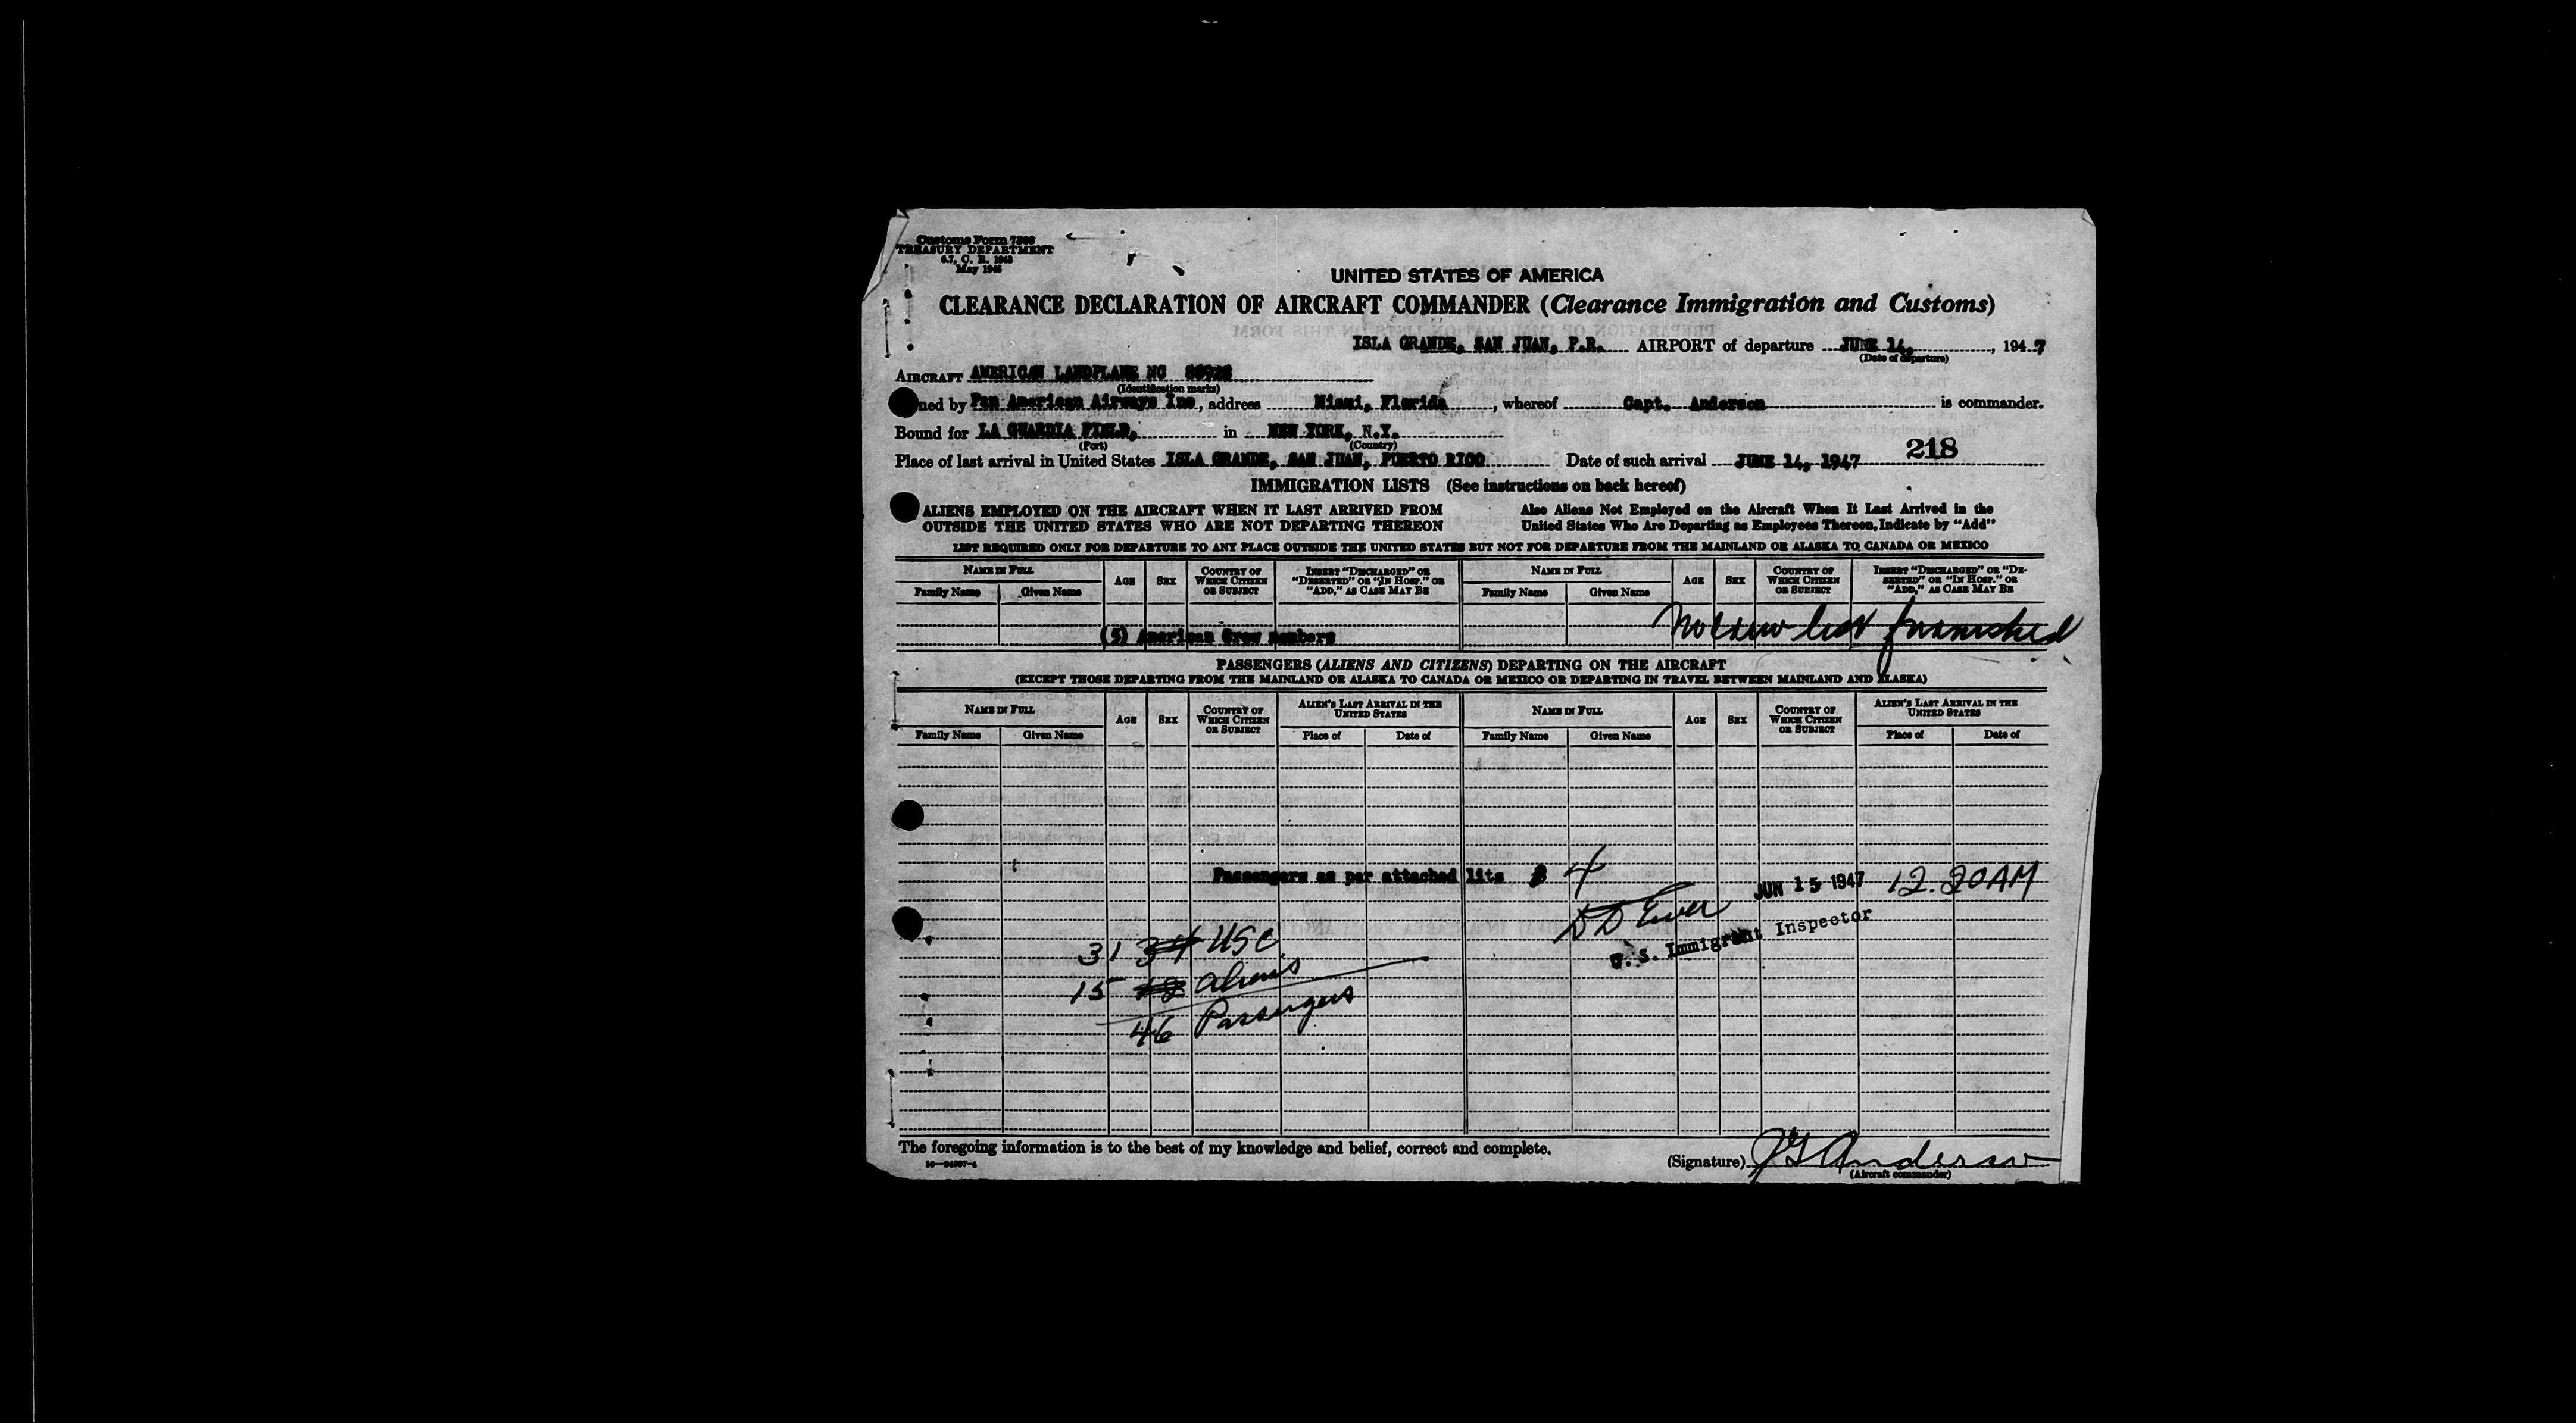 Customs Form 7366
TREASURY DEPARTMENT
May 1945
UNITED STATES OF AMERICA
CLEARANCE DECLARATION OF AIRCRAFT COMMANDER (Clearance Immigration and Customs)
ISLA GRANDE, SAN JUAN, P.R. AIRPORT of departure JUNE 14, 1947
(Date of departure)
AIRCRAFT AMERICAN LANDPLANE NC
(Identification marks)
ned by Pan American Airways Inc, address Miami, Florida, whereof Capt. Anderson is commander.
Bound for LA GUARDIA FIELD, in NEW YORK, N.Y.
(Port) (Country)
218
Place of last arrival in United States ISLA GRANDE, SAN JUAN, PUERTO RICO Date of such arrival JUNE 14, 1947
IMMIGRATION LISTS (See instructions on back hereof)
ALIENS EMPLOYED ON THE AIRCRAFT WHEN IT LAST ARRIVED FROM OUTSIDE THE UNITED STATES WHO ARE NOT DEPARTING THEREON
Also Aliens Not Employed on the Aircraft When It Last Arrived in the United States Who Are Departing as Employees Thereon, Indicate by "Add"
LIST REQUIRED ONLY FOR DEPARTURE TO ANY PLACE OUTSIDE THE UNITED STATES BUT NOT FOR DEPARTURE FROM THE MAINLAND OR ALASKA TO CANADA OR MEXICO
NAME IN FULL AGE SEX COUNTRY OF WHICH CITIZEN OR SUBJECT INSERT "DISCHARGED" OR "DESERTED" OR "IN HOSP." OR "ADD," AS CASE MAY BE NAME IN FULL AGE SEX COUNTRY OF WHICH CITIZEN OR SUBJECT INSERT "DISCHARGED" OR "DESERTED" OR "IN HOSP." OR "ADD," AS CASE MAY BE
Family Name Given Name Family Name Given Name
(5) American Crew members No Crew list furnished
PASSENGERS (ALIENS AND CITIZENS) DEPARTING ON THE AIRCRAFT
(EXCEPT THOSE DEPARTING FROM THE MAINLAND OR ALASKA TO CANADA OR MEXICO OR DEPARTING IN TRAVEL BETWEEN MAINLAND AND ALASKA)
NAME IN FULL AGE SEX COUNTRY OF WHICH CITIZEN OR SUBJECT ALIEN'S LAST ARRIVAL IN THE UNITED STATES NAME IN FULL AGE SEX COUNTRY OF WHICH CITIZEN OR SUBJECT ALIEN'S LAST ARRIVAL IN THE UNITED STATES
Family Name Given Name Place of Date of Family Name Given Name Place of Date of
Passengers as per attached lits 4 JUN 15 1947 12.20AM
U.S. Immigrant Inspector
31 34 USC
15 12 aliens
46 Passengers
The foregoing information is to the best of my knowledge and belief, correct and complete.
(Signature) Anderson
(Aircraft commander)